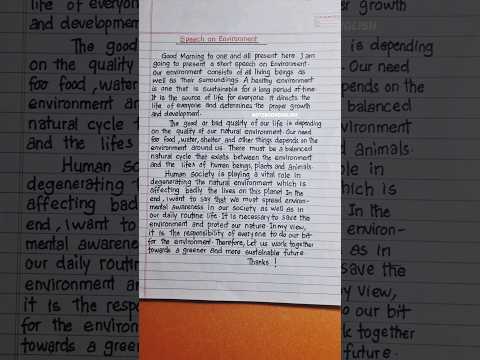 Speech on Environment
Good Morning to one and all present here. I am
going to present a short speech on Environment.
Our environment consists of all living beings as
well as their surroundings. A healthy environment
is one that is sustainable for a long period of time.
It is the source of life for everyone. It directs the
life of everyone and determines the proper growth
and development.
The good or bad quality of our life is depending
on the quality of our natural environment. Our need
for food, water, shelter and other things depends on the
environment around us. There must be a balanced
natural cycle that exists between the environment
and the lifes of human beings, plants and animals.
Human society is playing a vital role in
degenerating the natural environment which is
affecting badly the lives on this planet. In the
end, I want to say that we must spread environ-
mental awareness in our society as well as in
our daily routine life. It is necessary to save the
environment and protect our nature. In my view,
it is the responsibility of everyone to do our bit
for the environment. Therefore, Let us work together
towards a greener and more sustainable future.
Thanks !